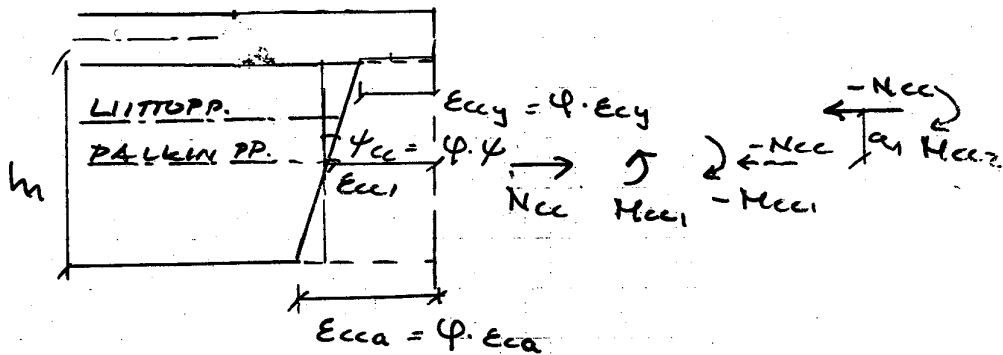 LIITTOPP.
PALKIN PP.
h
εccy = φ · εcy
ψcc = φ · ψ
εcc1
Ncc
Mcc1
-Ncc
-Mcc1
-Ncc
a1
Mcc2
εcca = φ · εca